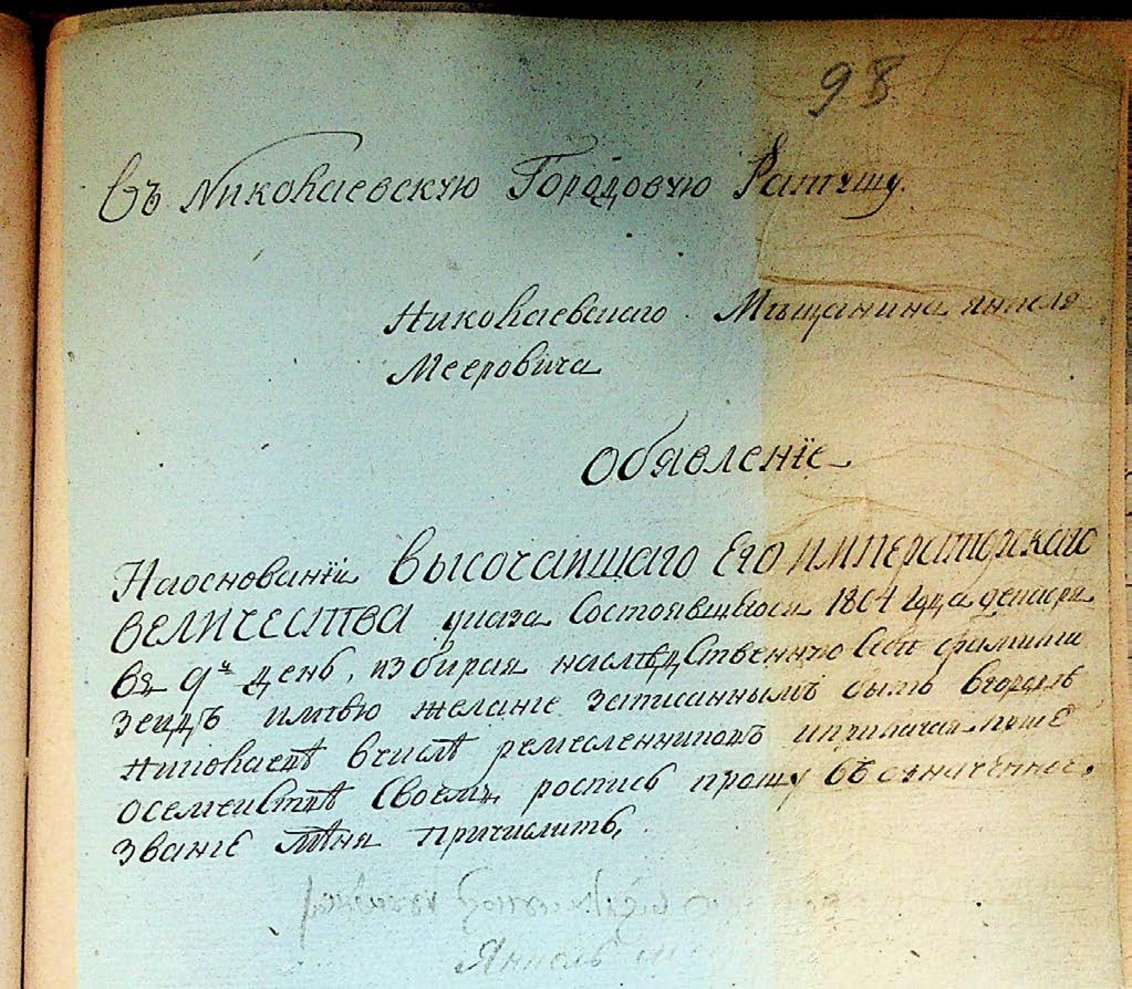 98
Въ Николаевскую Городовую Ратушу.
Николаевскаго Мѣщанина Янкеля
Мееровича
Обявленїе
Наоснованїи Высочаишаго Его императорскаго
Величества указа Состоявшегося 1804 года декабря
въ 9й день, избирая наслѣдственную Себе фамилию
Зеидъ имѣю желанїе записаннымъ быть вгородѣ
Николаевѣ вчислѣ ремесленниковъ иприлагая приѣ
осемеиствѣ Своемъ роспись прошу въ означенное
званїе мѣня причислить,
Янкель